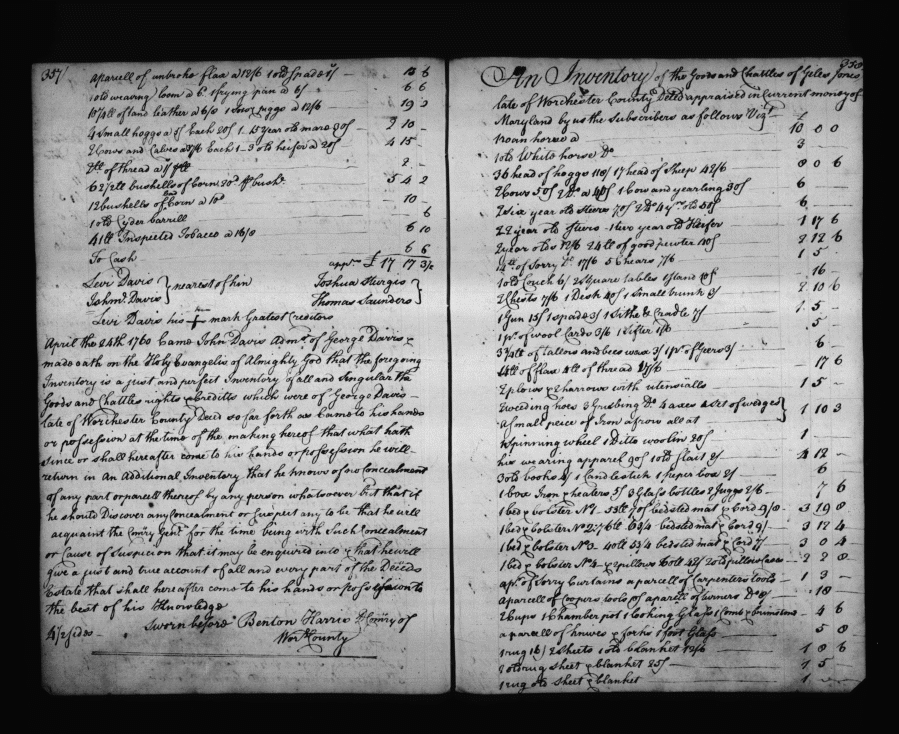 357/
a parcell of unbroke flax a 12/6 1 old spade 1/ 13 6
1 old weaving loom a 6/ 1 frying pan a 6/ 6 6
10 1/2 lb of tand leather a 6/3 1 Sow & piggs a 12/6 19 2
4 small hoggs a 5/ Each 20/ 1 13 year old mare 30/ 2 10 -
2 Cows and Calves a 35/ Each 1-3 old heifer a 20/ 4 15 -
2 lb of thread a 1/ lb 2 -
62 1/2 bushells of Corn 20d bush 5 4 2
12 bushells of Corn a 10d 10 -
1 old Cyder barrill 6
41 lb Inspected Tobacco a 16/8 6 10
To Cash 6 6
£ 17 17 3 1/2
Levi Davis } nearest of kin Joshua Sturgis }
John Davis Thomas Saunders
Levi Davis his + mark Gratest Creditors
April the 24th 1760 Came John Davis Admr of George Davis &
made oath on the Holy Evangelis of Almighty God that the foregoing
Inventory is a just and perfect Inventory of all and Singular the
Goods and Chattles rights & Creditts which were of George Davis
late of Worchester County Decd so far forth as Came to his hands
or possession at the time of the making hereof that what hath
since or shall hereafter come to his hands or possession he will
return in an Additional Inventory that he knows of no Concealment
of any part or parcell thereof by any person whatsoever but that if
he should Discover any Concealment or suspect any to be that he will
acquaint the Comry Genl for the time being with Such Concealment
or Cause of Suspicion that it may be enquired into & that he will
give a just and true account of all and every part of the Deceds
Estate that shall hereafter come to his hands or possession to
the best of his Knowledge
4 1/2 sides - Sworn before Benton Harris D Comry of
Worr County
358
An Inventory of the Goods and Chattles of Giles Jones
late of Worchester County Decd appraised in Current money of
Maryland by us the Subscribers as follows Vizt
1 roan horse a £ 10 0 0
1 old White horse Do 3 -
36 head of hoggs 118/ 17 head of Sheep 42/6 8 0 6
2 Cows 50/ 2 Do a 40/ 1 Cow and yearling 30/ 6 -
2 six year old steers 70/ 2 Do 4 yr old 50/ 6 -
2 2 year old steers 1 two year old Heifer 1 17 6
2 year olds 12/6 24 lb of good pewter 40/ 2 12 6
4 lb of Sorry Do 17/6 5 Chears 7/6 1 5 -
1 old Couch 6/ 2 square tables 10/ 16 -
2 Chests 7/6 1 Desk 40/ 1 small trunk 3/ 2 10 6
1 Gun 15/ 1 spade 3/ 1 Sithe & Cradle 7/ 1 5 -
1 pr of wool Cards 3/6 1 Sifter 1/6 5 -
3 1/4 lb of tallow and bees wax 3/ 1 pr of Geers 3/ 6 -
4 lb of flax 4 lb of thread 17/6 17 6
2 plows & 2 harrows with utensialls 1 5 -
2 weeding hoes 3 Grubing Do 4 axes a set of wedges }
a small peice of Iron a frow all at 1 10 3
1 Spinning wheel 1 Ditto woolin 20/ 1 -
his wearing apparel 90/ 1 old flail 2/ 4 12 -
3 old books 4/ 1 Candlestick 1 Paper box 2/ 6
1 box Iron & heaters 3/ 3 Glass bottles 2 Juggs 2/6 7 6
1 bed & bolster No 1 55 lb 70/ bedsted mat & Cord 9/8 3 19 8
1 bed & bolster No 2 76 lb 63/4 bedsted mat & Cord 9/ 3 12 4
1 bed & bolster No 3 40 lb 53/4 bedsted mat & Cord 7/ 3 0 4
1 bed & bolster No 4 & pillows 42/ 2 old pillow cases 2 2 8
a pr of Sorry Curtains a parcell of Carpenters tools 1 3 -
a parcell of Coopers tools a parcell of turners Do 8/ 18
2 Cups 1 Chamber pot 1 looking Glass 1 Comb & brimstone 4 6
a parcell of knives & forks 1 foot Glass 5 8
1 rug 16/ 2 sheets 1 old blanket 12/6 1 8 6
2 old rug sheet & blanket 25/ 1 5 -
1 rug old sheet & blanket 1 - -